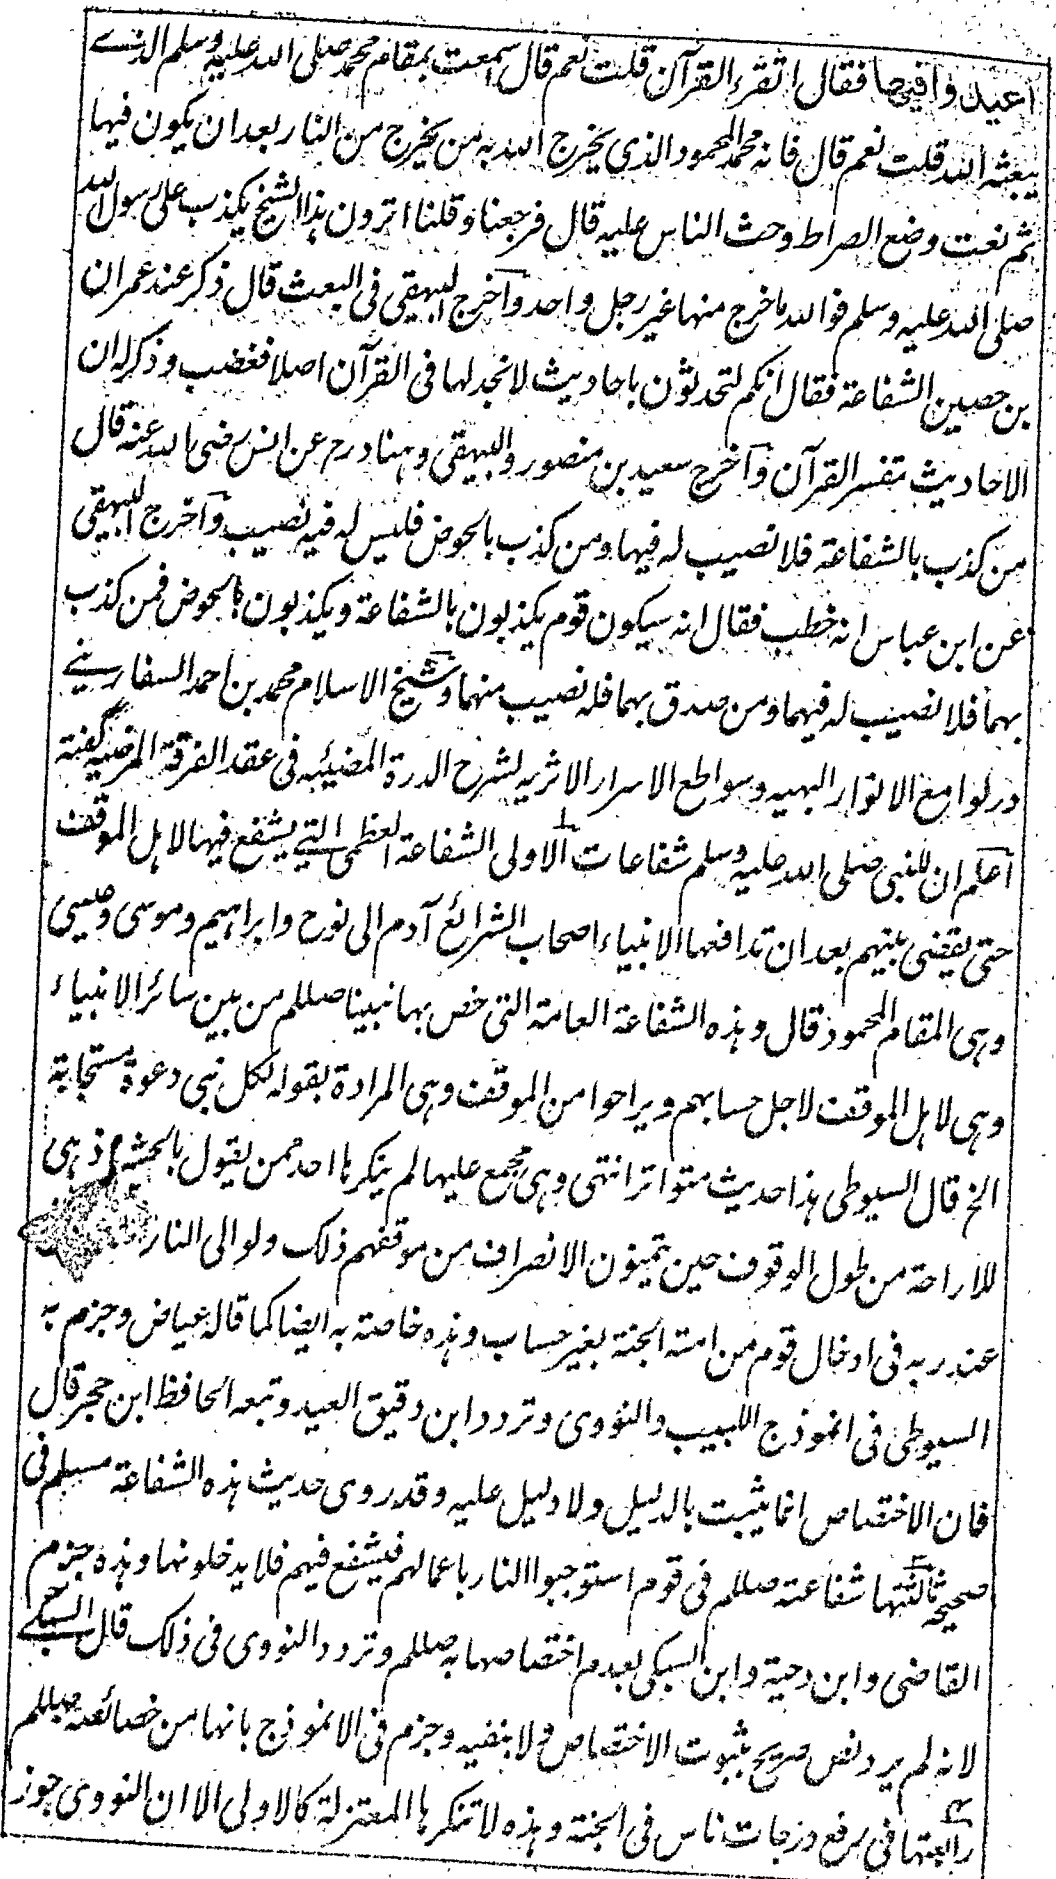 اعيدوا فيها فقال اتقرء القرآن قلت نعم قال سمعت بمقام محمد صلى الله عليه وسلم الذي
يبعثه الله قلت نعم قال فانه محمد المحمود الذي يخرج الله به من يخرج من النار بعد ان يكون فيها
ثم نعت وضع الصراط وحث الناس عليه قال فرجعنا وقلنا اترون هذا الشيخ يكذب على رسول الله
صلى الله عليه وسلم فوالله ما خرج منها غير رجل واحد وآخرج البيهقي في البعث قال ذكر عند عمران
بن حصين الشفاعة فقال انكم لتحدثون باحاديث لا نجد لها في القرآن اصلا فغضب وذكر له ان
الاحاديث تفسر القرآن وآخرج سعيد بن منصور والبيهقي وهناد رح عن انس رضى الله عنه قال
من كذب بالشفاعة فلا نصيب له فيها ومن كذب بالحوض فليس له فيه نصيب وآخرج البيهقي
عن ابن عباس انه خطب فقال انه سيكون قوم يكذبون بالشفاعة ويكذبون بالحوض فمن كذب
بهما فلا نصيب له فيهما ومن صدق بهما فله نصيب منهما وشيخ الاسلام محمد بن احمد السفاريني
در لوامع الانوار البهيه وسواطع الاسرار الاثريه لشرح الدرة المضيئه في عقد الفرقة المرضيه گفته
آعلم ان للنبي صلى الله عليه وسلم شفاعات الاولى الشفاعة العظمى التي يشفع فيها لاهل الموقف
حتى يقضى بينهم بعد ان تدافعها الانبياء اصحاب الشرائع آدم الى نوح وابراهيم وموسى وعيسى
وهي المقام المحمود قال وهذه الشفاعة العامة التي خص بها نبينا صللم من بين سائر الانبياء
وهي لاهل الموقف لاجل حسابهم ويراحوا من الموقف وهي المرادة بقوله لكل نبي دعوة مستجابة
الخ قال السيوطي هذا حديث متواتر انتهى وهي مجمع عليها لم ينكرها احد ممن يقول بالحشر اذ هي
للاراحة من طول الوقوف حين يتمنون الانصراف من موقفهم ذلك ولو الى النار
عند ربه في ادخال قوم من امته الجنة بغير حساب وهذه خاصته به ايضا كما قاله عياض وجزم به
السيوطي في انموذج اللبيب والنووى وتردد ابن دقيق العيد وتبعه الحافظ ابن حجر قال
فان الاختصاص انما يثبت بالدليل ولا دليل عليه وقد روى حديث هذه الشفاعة مسلم في
صحيحه ثالثتها شفاعته صللم في قوم استوجبوا النار باعمالهم فيشفع فيهم فلا يدخلونها وهذه جزم
القاضي وابن دحية وابن السبكي بعدم اختصاصها به صللم وتردد النووى في ذلك قال السبكي
لانه لم يرد نص صريح بثبوت الاختصاص ولا بنفيه وجزم في الانموذج بانها من خصائصه صللم
رابعتها في رفع درجات ناس في الجنة وهذه لا تنكرها المعتزلة كالاولى الا ان النووى جوز